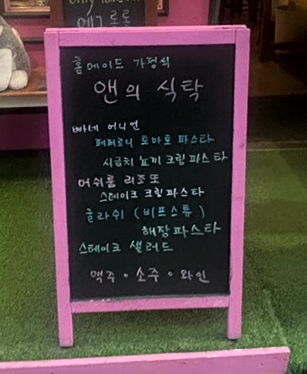 에그토토
홈메이드 가정식
앤의 식탁
빠네 어니언
페페로니 토마토 파스타
시금치 뇨끼 크림 파스타
머쉬룸 리조또
스테이크 크림파스타
굴라쉬 (비프스튜)
해장파스타
스테이크 샐러드
맥주 · 소주 · 와인